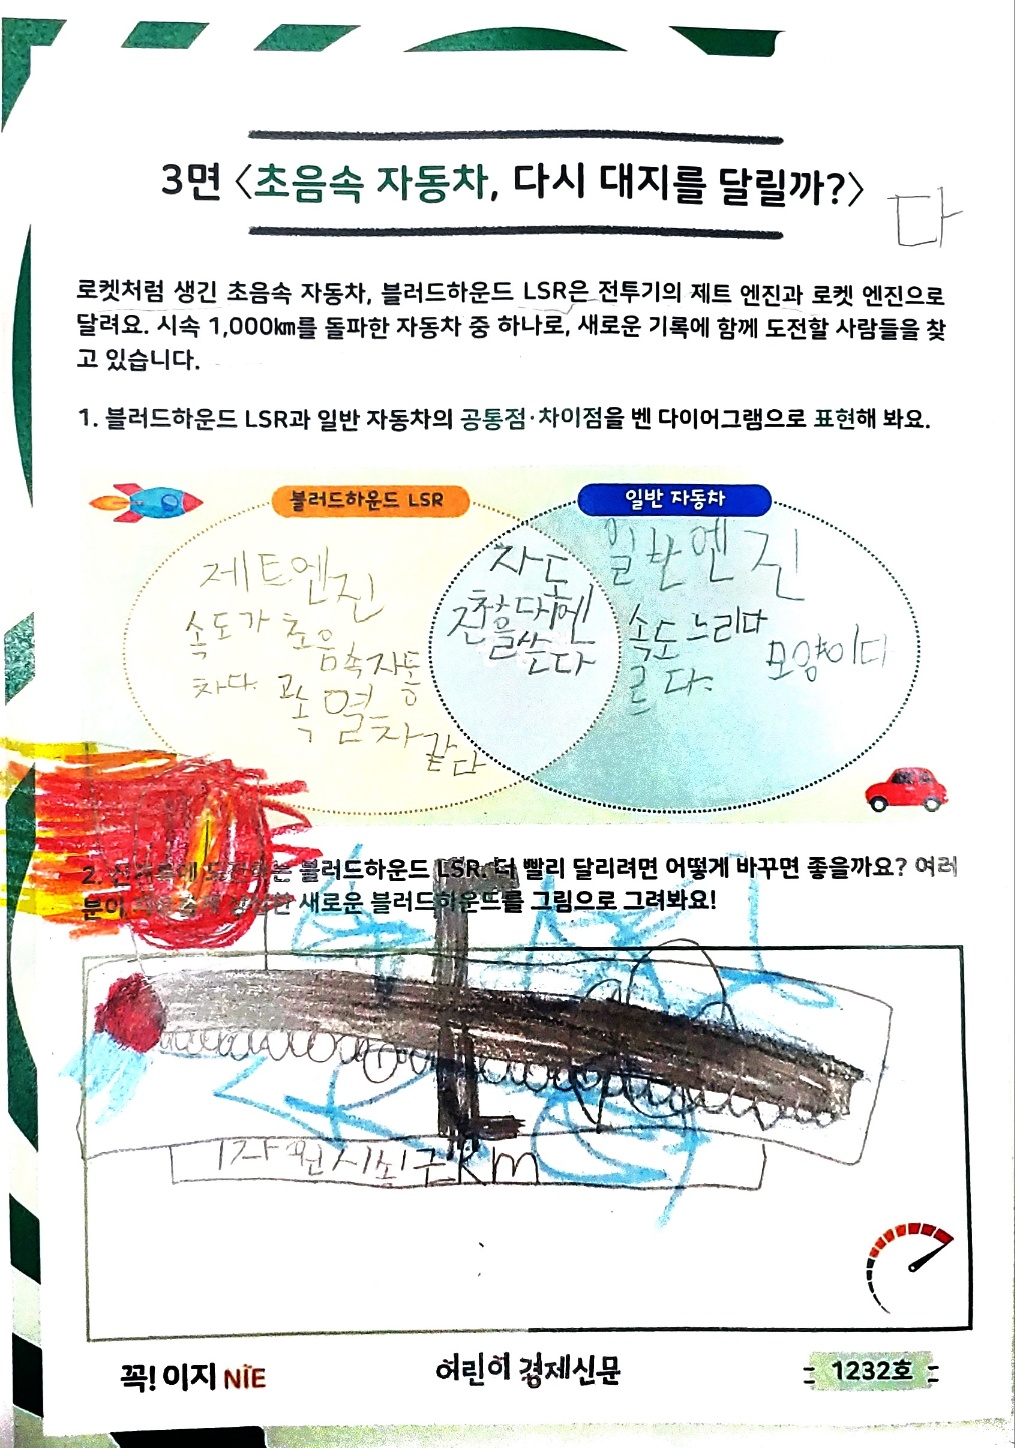 3면 〈초음속 자동차, 다시 대지를 달릴까?〉
다
로켓처럼 생긴 초음속 자동차, 블러드하운드 LSR은 전투기의 제트 엔진과 로켓 엔진으로
달려요. 시속 1,000㎞를 돌파한 자동차 중 하나로, 새로운 기록에 함께 도전할 사람들을 찾
고 있습니다.
1. 블러드하운드 LSR과 일반 자동차의 공통점·차이점을 벤 다이어그램으로 표현해 봐요.
블러드하운드 LSR
일반 자동차
제트엔진
속도가 초음속자동
차다. 고속열차 같다
일반엔진
속도 느리다
모양이다
르다.
2. 도전하는 블러드하운드 LSR. 더 빨리 달리려면 어떻게 바꾸면 좋을까요? 여러
분이 새로운 블러드하운드를 그림으로 그려봐요!
km
꼭! 이지 NIE
어린이 경제신문
1232호